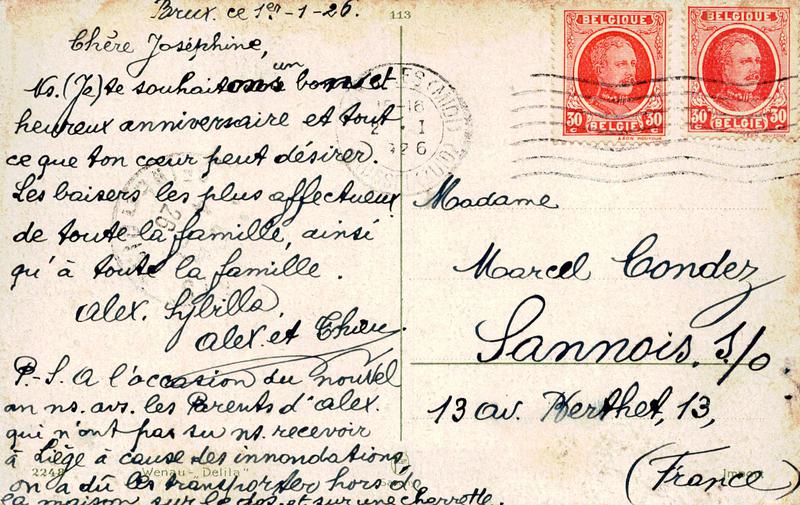 Brux. ce 1er-1-26.
Chère Joséphine,
Ns. (Je) te souhaitons un bons et
heureux anniversaire et tout
ce que ton cœur peut désirer.
Les baisers les plus affectueux
de toute la famille, ainsi
qu'à toute la famille.
Alex. Sybilla
Alex. et
P.-S. A l'occasion du nouvel
an ns. avs. les Parents d'Alex.
qui n'ont pas su ns. recevoir
à Liège à cause des innondations,
on a dû les transporter hors de
la maison sur le dos, et sur une charrette.
2248 "Wenau-Delila"
113
16
2 I
26
BELGIQUE
30 30
BELGIË
BELGIQUE
30 30
BELGIË
Madame
Marcel Condez
Sannois. S/O.
13 av. Kerthet, 13,
(France)